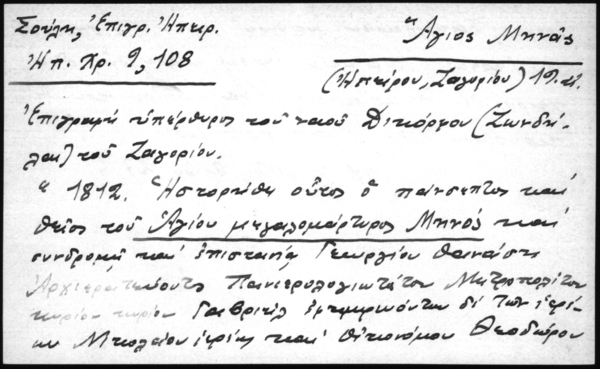 Σούλη, Ἐπιγρ. Ἠπειρ.
Ἅγιος Μηνᾶς
Ἠπ. Χρ. 9, 108
(Ἠπείρου, Ζαγορίου) 19. αἰ.
Ἐπιγραφὴ ὑπέρθυρος τοῦ ναοῦ Δικόρφου (Ζωνδή-
λας) τοῦ Ζαγορίου.
"1812. Ἡστορήθη οὗτος ὁ πάνσεπτος καὶ
θεῖος τοῦ Ἁγίου μεγαλομάρτυρος Μηνᾶ καὶ
συνδρομῆ καὶ ἐπιστασία Γεωργίου Θανάση
Ἀρχιερατεύοντος Πανιερολογιωτάτου Μητροπολίτου
κυρίου κυρίου Γαβριὴλ ἐφημερευόντων δὲ τῶν ἱερέ-
ων ἱερέως καὶ Οἰκονόμου Θεοδώρου